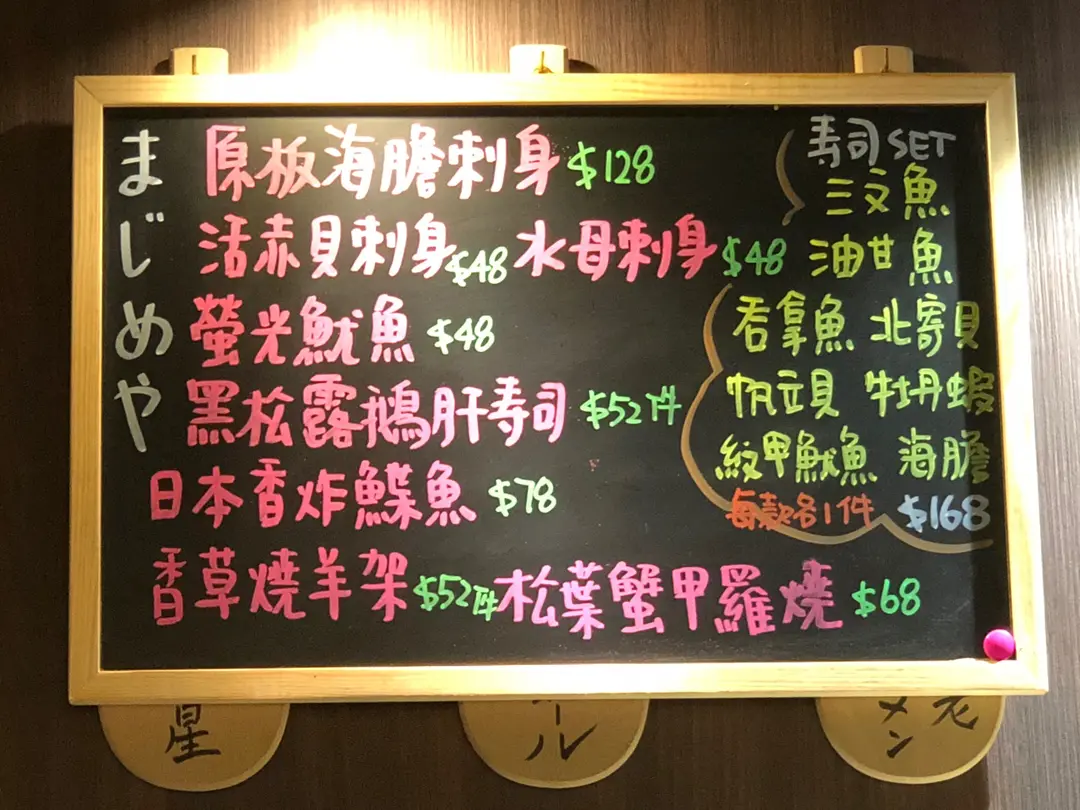 まじめや
原板海膽刺身 $128
活赤貝刺身 $48 水母刺身 $48
螢光魷魚 $48
黑松露鵝肝寿司 $52件
日本香炸鰈魚 $78
香草燒羊架 $52件 松葉蟹甲羅燒 $68
寿司SET
三文魚
油甘魚
吞拿魚 北寄貝
帆立貝 牡丹蝦
紋甲魷魚 海膽
每款各1件 $168
星
ール
メン